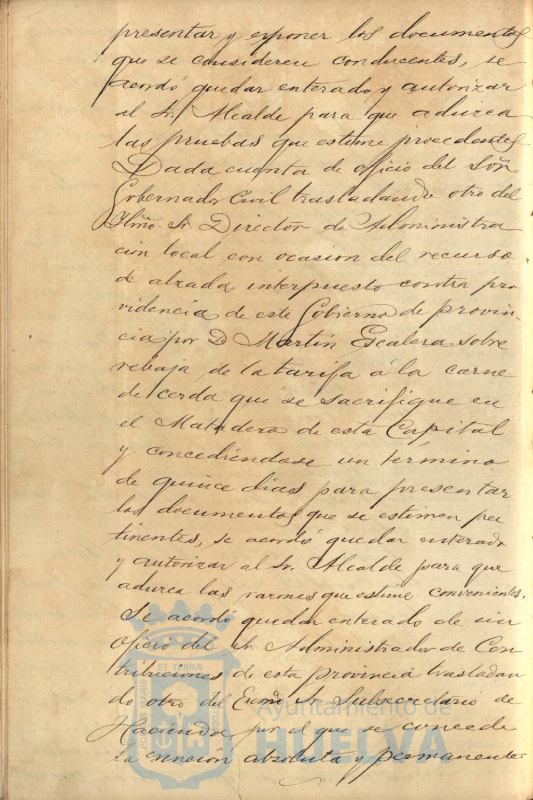 presentar y exponer los documentos
que se consideren conducentes, se
acordó quedar enterado y autorizar
al Sr. Alcalde para que aduzca
las pruebas que estime procedentes
Dada cuenta de oficio del Sôr.
Gobernador Civil trasladando otro del
Iltmo. Sr. Director de Administra
cion local con ocasion del recurso
de alzada interpuesto contra pro
videncia de este Gobierno de provin-
cia por D. Martin Escalera sobre
rebaja de la tarifa á la carne
de cerda que se sacrifique en
el Matadero de esta Capital
y concediéndose un término
de quince dias para presentar
los documentos que se estimen per
tinentes, se acordó quedar enterado
y autorizar al Sr. Alcalde para que
aduzca las razones que estime convenientes.
Se acordó quedar enterado de un
oficio del Sr. Administrador de Con
tribuciones de esta provincia trasladan
do otro del Excmo. Sr. Subsecretario de
Hacienda por el que se concede
la exención absoluta y permanente
ET TERRÆ
Ayuntamiento de
HUELVA